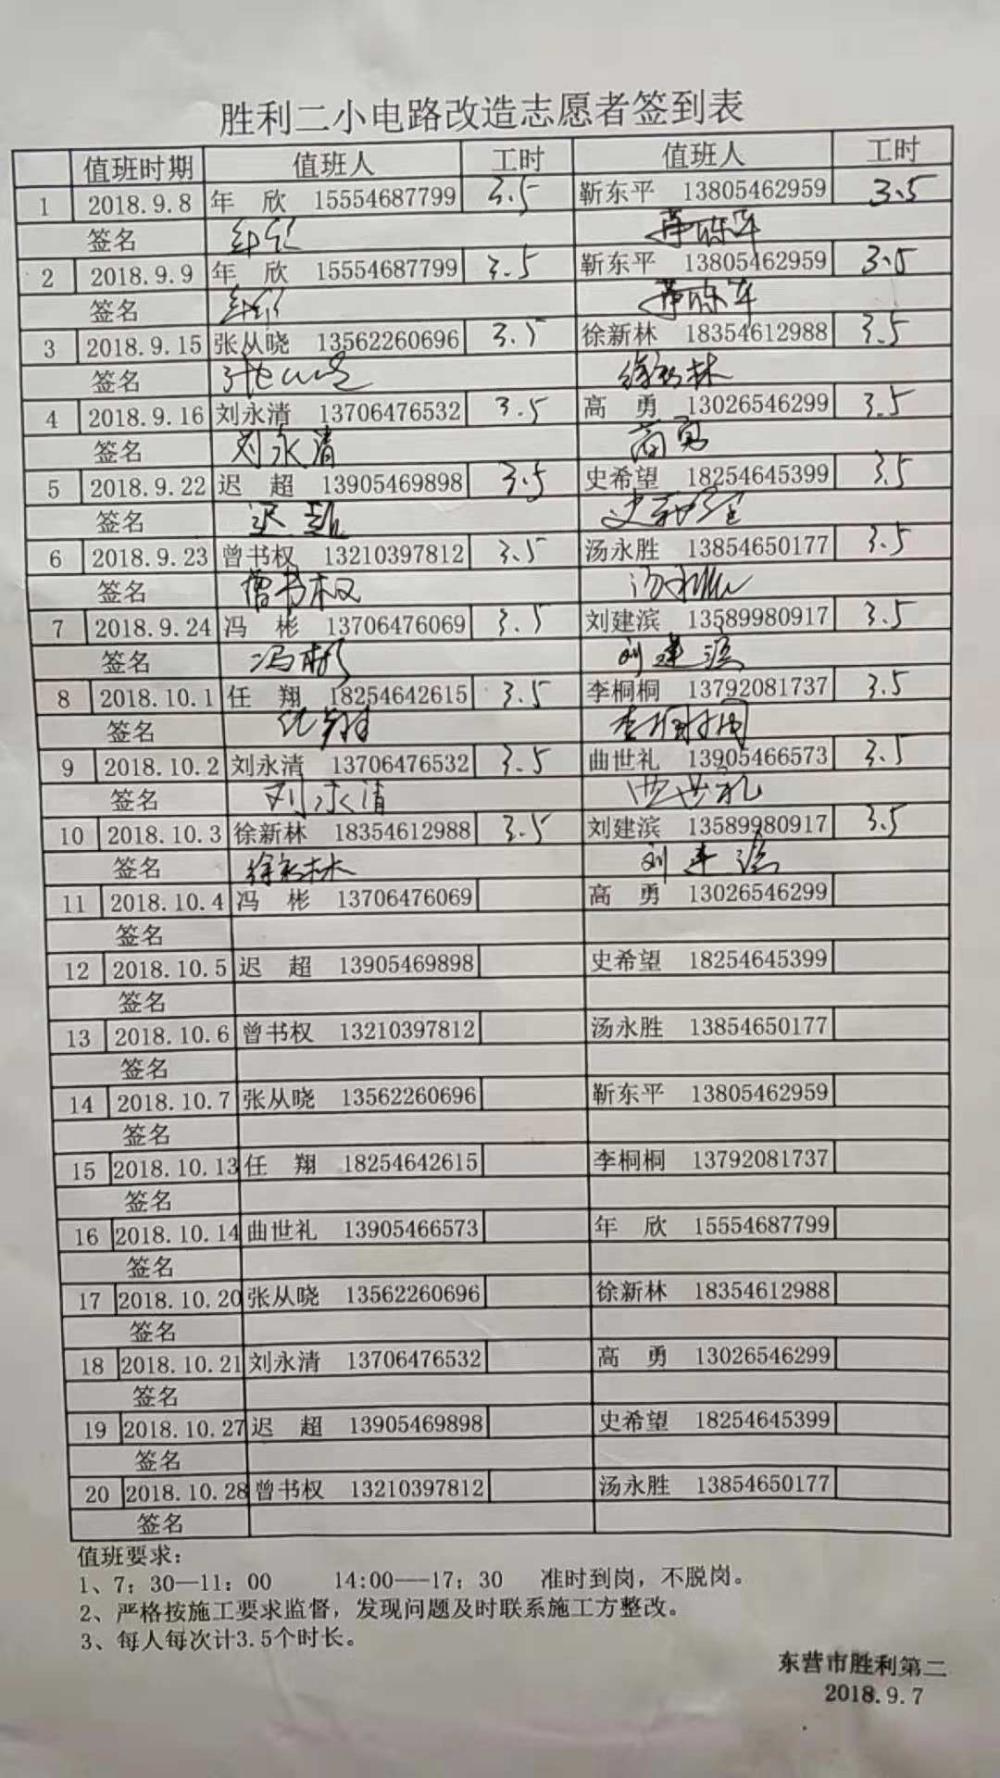 胜利二小电路改造志愿者签到表
值班时期 值班人 工时 值班人 工时
1 2018.9.8 年 欣 15554687799 3.5 靳东平 13805462959 3.5
签名
2 2018.9.9 年 欣 15554687799 3.5 靳东平 13805462959 3.5
签名
3 2018.9.15 张从晓 13562260696 3.5 徐新林 18354612988 3.5
签名 徐新林
4 2018.9.16 刘永清 13706476532 3.5 高 勇 13026546299 3.5
签名 刘永清 高勇
5 2018.9.22 迟 超 13905469898 3.5 史希望 18254645399 3.5
签名 迟超 史希望
6 2018.9.23 曾书权 13210397812 3.5 汤永胜 13854650177 3.5
签名 曾书权 汤永胜
7 2018.9.24 冯 彬 13706476069 3.5 刘建滨 13589980917 3.5
签名 冯彬 刘建滨
8 2018.10.1 任 翔 18254642615 3.5 李桐桐 13792081737 3.5
签名 任翔 李桐桐
9 2018.10.2 刘永清 13706476532 3.5 曲世礼 13905466573 3.5
签名 刘永清 曲世礼
10 2018.10.3 徐新林 18354612988 3.5 刘建滨 13589980917 3.5
签名 徐新林 刘建滨
11 2018.10.4 冯 彬 13706476069 高 勇 13026546299
签名
12 2018.10.5 迟 超 13905469898 史希望 18254645399
签名
13 2018.10.6 曾书权 13210397812 汤永胜 13854650177
签名
14 2018.10.7 张从晓 13562260696 靳东平 13805462959
签名
15 2018.10.13 任 翔 18254642615 李桐桐 13792081737
签名
16 2018.10.14 曲世礼 13905466573 年 欣 15554687799
签名
17 2018.10.20 张从晓 13562260696 徐新林 18354612988
签名
18 2018.10.21 刘永清 13706476532 高 勇 13026546299
签名
19 2018.10.27 迟 超 13905469898 史希望 18254645399
签名
20 2018.10.28 曾书权 13210397812 汤永胜 13854650177
签名
值班要求：
1、7：30—11：00 14:00——17：30 准时到岗，不脱岗。
2、严格按施工要求监督，发现问题及时联系施工方整改。
3、每人每次计3.5个时长。
东营市胜利第二
2018.9.7